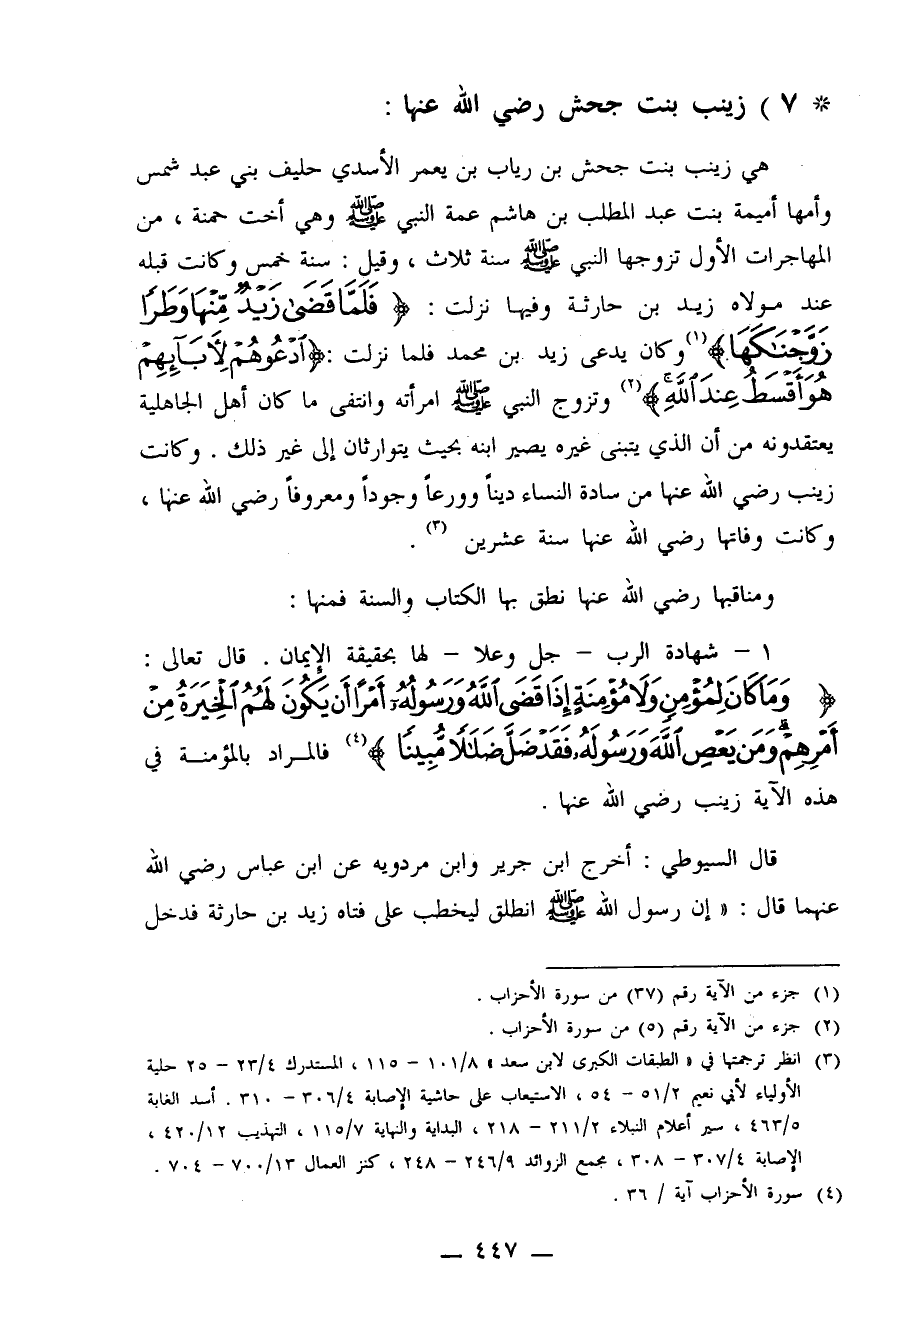 * ٧ ) زينب بنت جحش رضي الله عنها :
هي زينب بنت جحش بن رياب بن يعمر الأسدي حليف بني عبد شمس
وأمها أميمة بنت عبد المطلب بن هاشم عمة النبي ﷺ وهي أخت حمنة ، من
المهاجرات الأول تزوجها النبي ﷺ سنة ثلاث ، وقيل : سنة خمس وكانت قبله
عند مولاه زيد بن حارثة وفيها نزلت : ﴿ فَلَمَّا قَضَىٰ زَيْدٌ مِّنْهَا وَطَرًا
زَوَّجْنَٰكَهَا ﴾(١) وكان يدعى زيد بن محمد فلما نزلت : ﴿ ٱدْعُوهُمْ لِأَبَآئِهِمْ
هُوَ أَقْسَطُ عِندَ ٱللَّهِ ۚ ﴾(٢) وتزوج النبي ﷺ امرأته وانتفى ما كان أهل الجاهلية
يعتقدونه من أن الذي يتبنى غيره يصير ابنه بحيث يتوارثان إلى غير ذلك . وكانت
زينب رضي الله عنها من سادة النساء ديناً وورعاً وجوداً ومعروفاً رضي الله عنها ،
وكانت وفاتها رضي الله عنها سنة عشرين (٣) .
ومناقبها رضي الله عنها نطق بها الكتاب والسنة فمنها :
١ – شهادة الرب – جل وعلا – لها بحقيقة الإيمان . قال تعالى :
﴿ وَمَا كَانَ لِمُؤْمِنٍ وَلَا مُؤْمِنَةٍ إِذَا قَضَى ٱللَّهُ وَرَسُولُهُۥٓ أَمْرًا أَن يَكُونَ لَهُمُ ٱلْخِيَرَةُ مِنْ
أَمْرِهِمْ ۗ وَمَن يَعْصِ ٱللَّهَ وَرَسُولَهُۥ فَقَدْ ضَلَّ ضَلَٰلًا مُّبِينًا ﴾(٤) فالمراد بالمؤمنة في
هذه الآية زينب رضي الله عنها .
قال السيوطي : أخرج ابن جرير وابن مردويه عن ابن عباس رضي الله
عنهما قال : « إن رسول الله ﷺ انطلق ليخطب على فتاه زيد بن حارثة فدخل
(١) جزء من الآية رقم (٣٧) من سورة الأحزاب .
(٢) جزء من الآية رقم (٥) من سورة الأحزاب .
(٣) انظر ترجمتها في « الطبقات الكبرى لابن سعد » ١٠١/٨ – ١١٥ ، المستدرك ٢٣/٤ – ٢٥ حلية
الأولياء لأبي نعيم ٥١/٢ – ٥٤ ، الاستيعاب على حاشية الإصابة ٣٠٦/٤ – ٣١٠ . أسد الغابة
٤٦٣/٥ ، سير أعلام النبلاء ٢١١/٢ – ٢١٨ ، البداية والنهاية ١١٥/٧ ، التهذيب ٤٢٠/١٢ ،
الإصابة ٣٠٧/٤ – ٣٠٨ ، مجمع الزوائد ٢٤٦/٩ – ٢٤٨ ، كنز العمال ٧٠٠/١٣ – ٧٠٤ .
(٤) سورة الأحزاب آية / ٣٦ .
— ٤٤٧ —